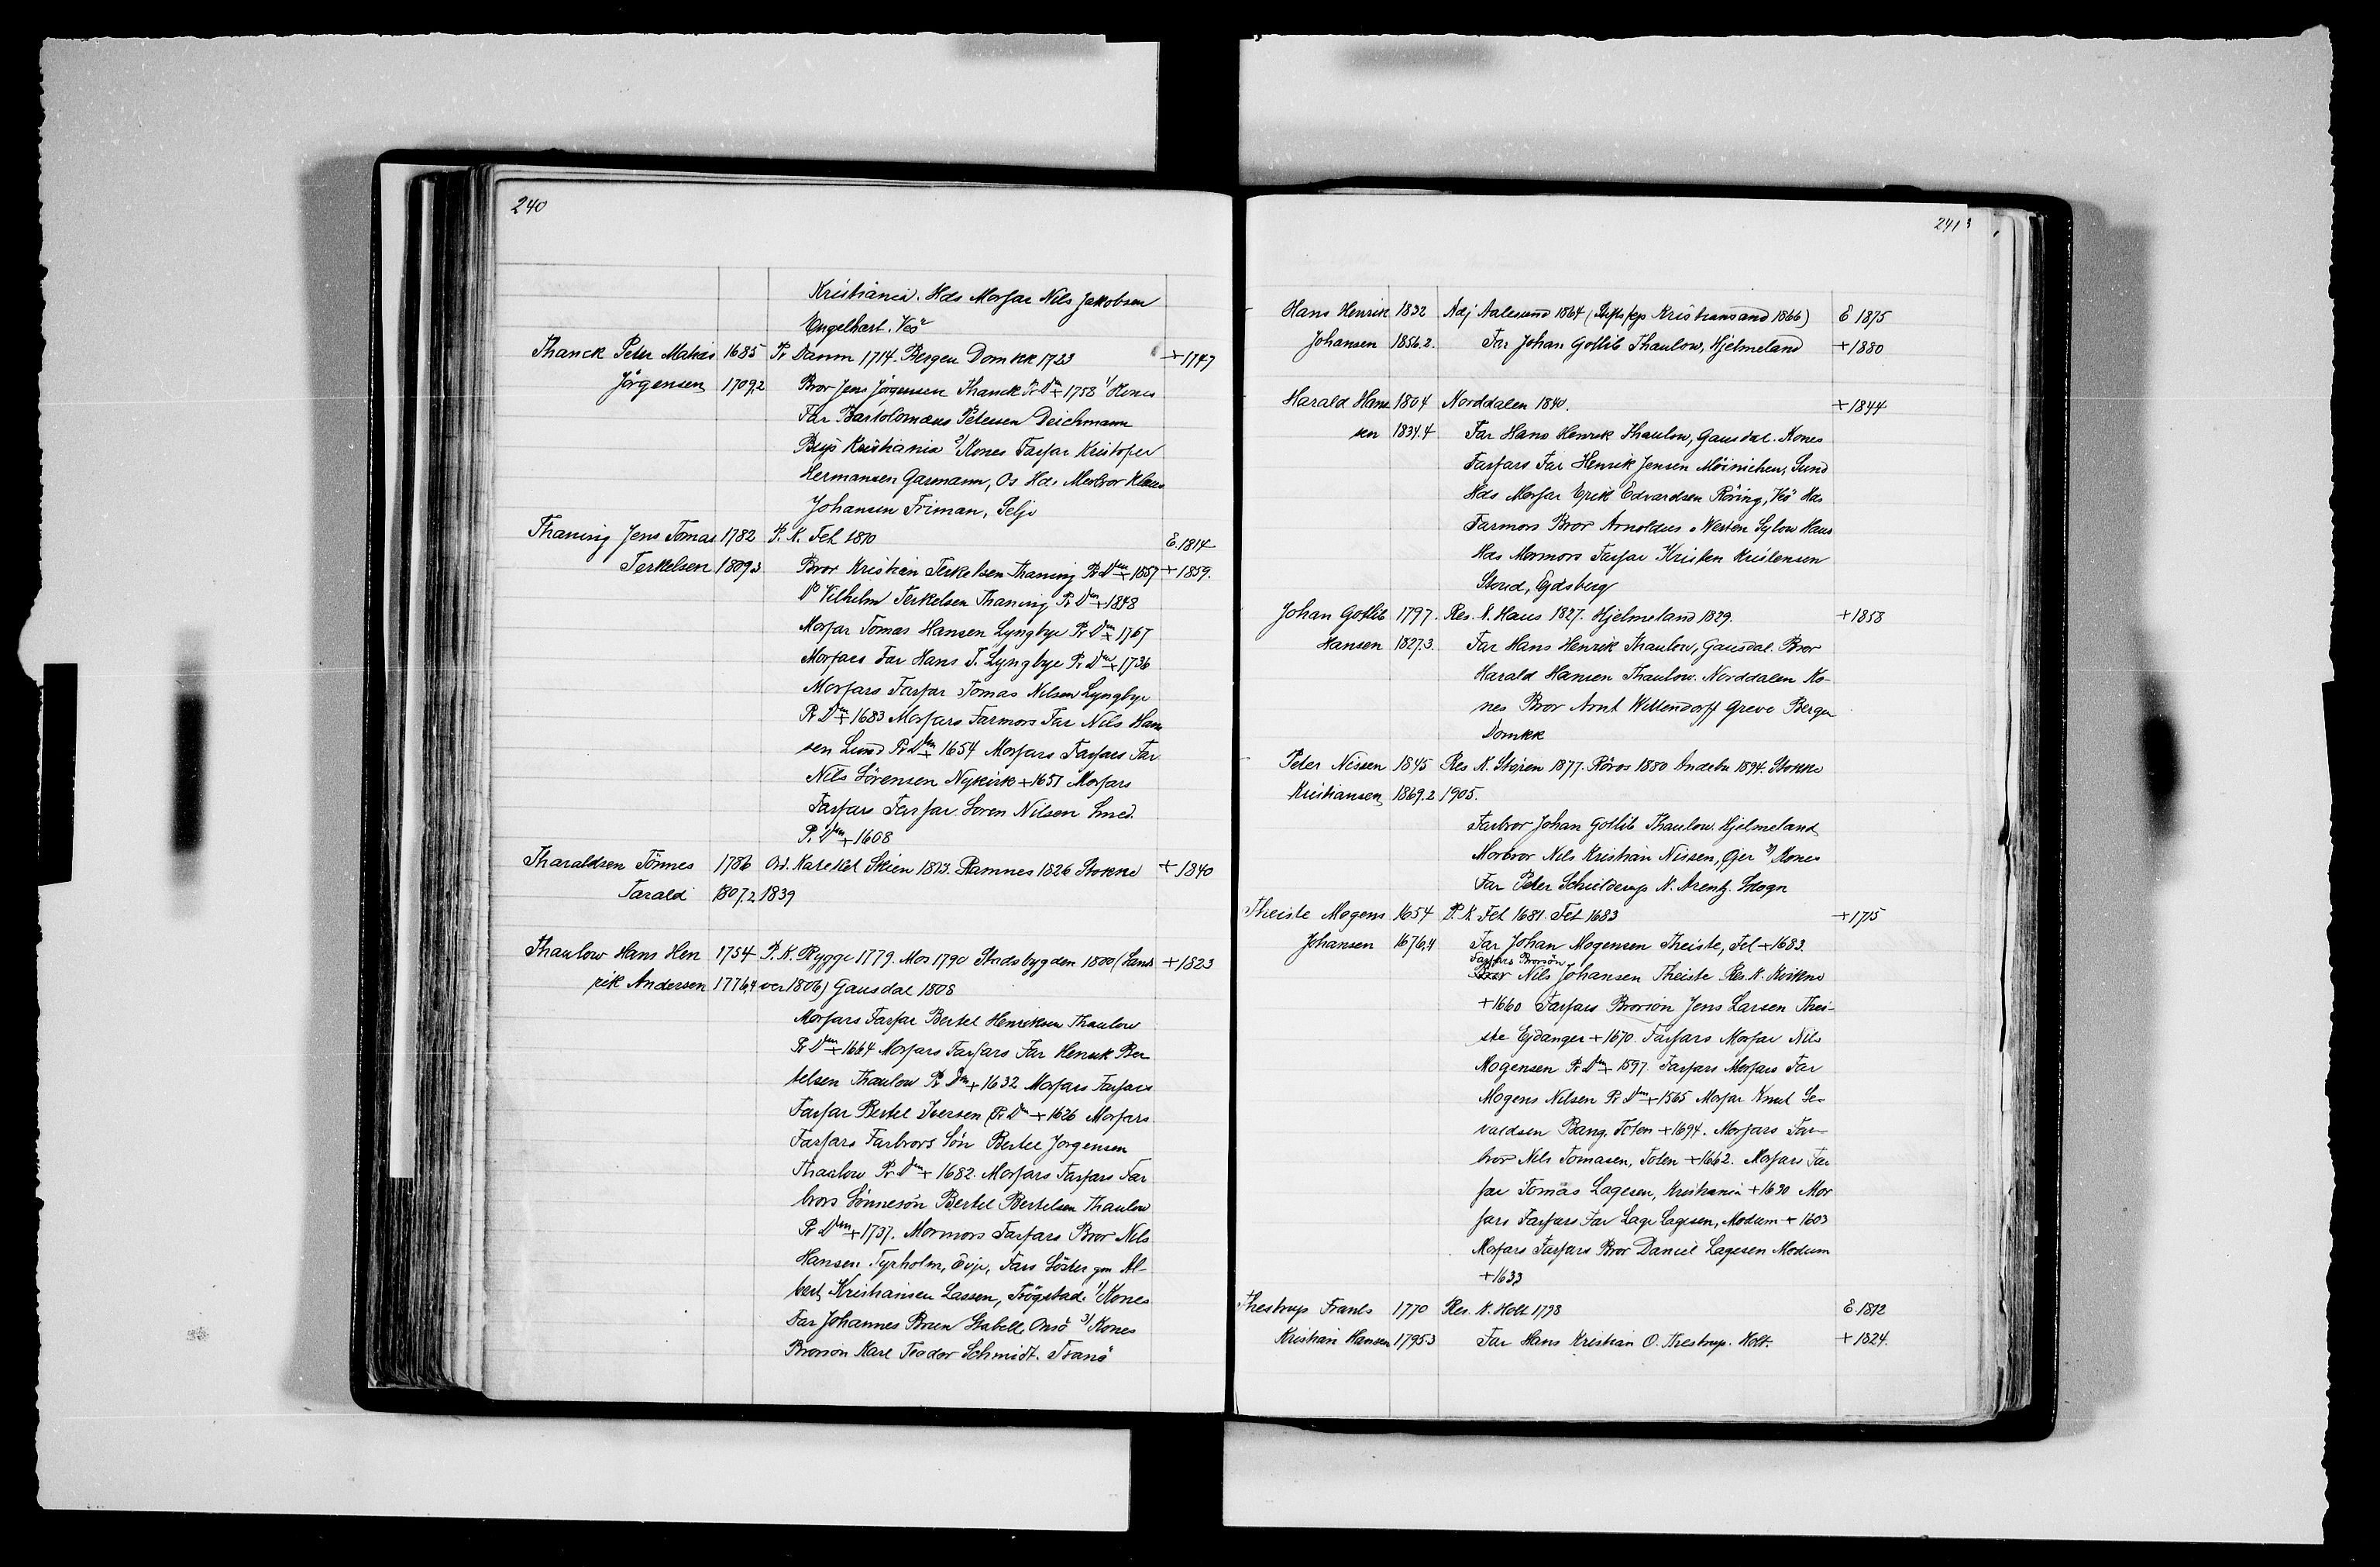 240
Kristiania. Hds Morfar Nils Jakobsen
Engelhart. Veö
Thanck Peter Matias 1685 Pr Danm 1714. Bergen Domkk 1723 +1747
Jörgensen 1709,2 Bror Jens Jörgensen Thanck Pr Dm + 1758 1) Kones
Far Bartolomæus Petersen Deichmann
Bisp Kristiania 2) Kones Farfar Kristofer
Hermansen Garmann, Os Hds Morbror Klaus
Johansen Friman, Selje
Thaning Jens Tomas 1782 P. K. Fet 1810 E. 1814
Terkelsen 1809.3 Bror Kristian Terkelsen Thaning Pr Dm + 1857 + 1859.
Do Vilhelm Terkelsen Thaning Pr Dm + 1848
Morfar Tomas Hansen Lyngbye Pr Dm + 1767
Morfars Far Hans T. Lyngbye Pr Dm + 1736
Morfars Farfar Tomas Nilsen Lyngbye
Pr Dm + 1683 Morfars Farmors Far Nils Han
sen Lund Pr Dm + 1654 Morfars Farfars Far
Nils Sörensen Nykirk + 1651 Morfars
Farfars Farfar Soren Nilsen Smed.
Pr Dm + 1608
Tharaldsen Tönnes 1786 Ord. Kateket Skien 1813. Ramnes 1826 Stokke + 1840
Tarald 1807.2 1839
Thaulow Hans Hen 1754 P. K. Rygge 1779. Mos 1790 Stadsbygden 1800 (Lands +1823
rik Andersen 1776,4 ver 1806) Gausdal 1808
Morfars Farfar Bertel Henriksen Thaulow
Pr Dm + 1664 Morfars Farfars Far Henrik Ber
telsen Thaulow Pr Dm + 1632 Morfars Farfars
Farfar Bertel Iversen Pr Dm + 1626 Morfars
Farfars Farbrors Sön Bertel Jorgensen
Thaulow Pr Dm + 1682. Morfars Farfars Far
brors Sönnesön Bertel Bertelsen Thaulow
Pr Dm + 1737. Mormors Farfars Bror Nils
Hansen Tyrholm, Evje, Fars Söster gm Al-
bert Kristiansen Lassen, Trögstad. 1) Kones
Far Johannes Brun Stabell, Onsö 3) Kones
Brorsön Karl Teodor Schmidt. Tranö
241
Hans Henrik 1832 Adj Aalesund 1864 (Stiftskp Kristiansand 1866) E 1875
Johansen 1856.2. Far Johan Gotlib Thaulow, Hjelmeland + 1880
Harald Han 1804 Norddalen 1840. + 1844
sen 1834.4 Far Hans Henrik Thaulow, Gausdal. Kones
Farfars Far Henrik Jensen Möinichen, Sund
Hds Morfar Erik Edvardsen Röring, Veö Hds
Farmors Bror Arnoldus v Westen Sylow Haus
Hds Mormors Farfar Kristen Kristensen
Stoud, Ejdsberg
Johan Gotlib 1797. Res. K. Haus 1827. Hjelmeland 1829. + 1858
Hansen 1827.3. Far Hans Henrik Thaulow, Gausdal. Bror
Harald Hansen Thaulow. Norddalen Ko-
nes Bror Arnt Wittendorff Greve Bergen
Domkk
Peter Nissen 1845 Res K. Stören 1877. Röros 1880 Andebu 1894. Stokke
Kristiansen 1869.2 1905.
Farbror Johan Gotlib Thaulow. Hjelmeland
Morbror Nils Kristian Nissen, Öjer 2) Kones
Far Peter Schielderup N. Arentz. Sdogn
Theiste Mogens 1654 P. K Fet 1681. Fet 1683 + 1715
Johansen 1676,4 Far Johan Mogensen Theiste, Fet + 1683.
Farfars Brorsön
Bror Nils Johansen Theiste Res. K. Kvikne
+ 1660 Farfars Brorsön Jens Larsen Thei-
ste Ejdanger + 1670. Farfars Morfar Nils
Mogensen Pr Dm + 1597. Farfars Morfars Far
Mogens Nilsen Pr Dm + 1565 Morfar Knut Se-
valdsen Bang, Toten + 1694. Morfars Far-
bror Nils Tomasen, Toten + 1662. Morfars Far
far Tomas Lagesen, Kristiania + 1630 Mor
fars Farfars Far Lage Lagesen, Modum + 1603
Morfars Farfars Bror Daniel Lagesen Modum
+ 1633
Thestrup Frants 1770 Res. K. Holt 1798 E. 1812
Kristian Hansen 1795.3 Far Hans Kristian O. Thestrup. Holt. + 1824.